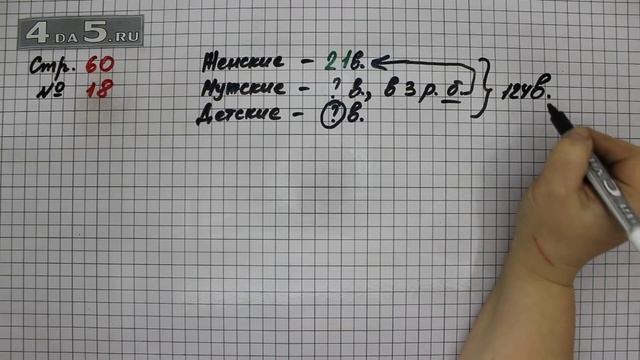 4 ДА 5.RU
Стр. 60
№ 18
Женские - 21в.
Мужские - ? в., в 3 р. б.
Детские - ? в.
124в.